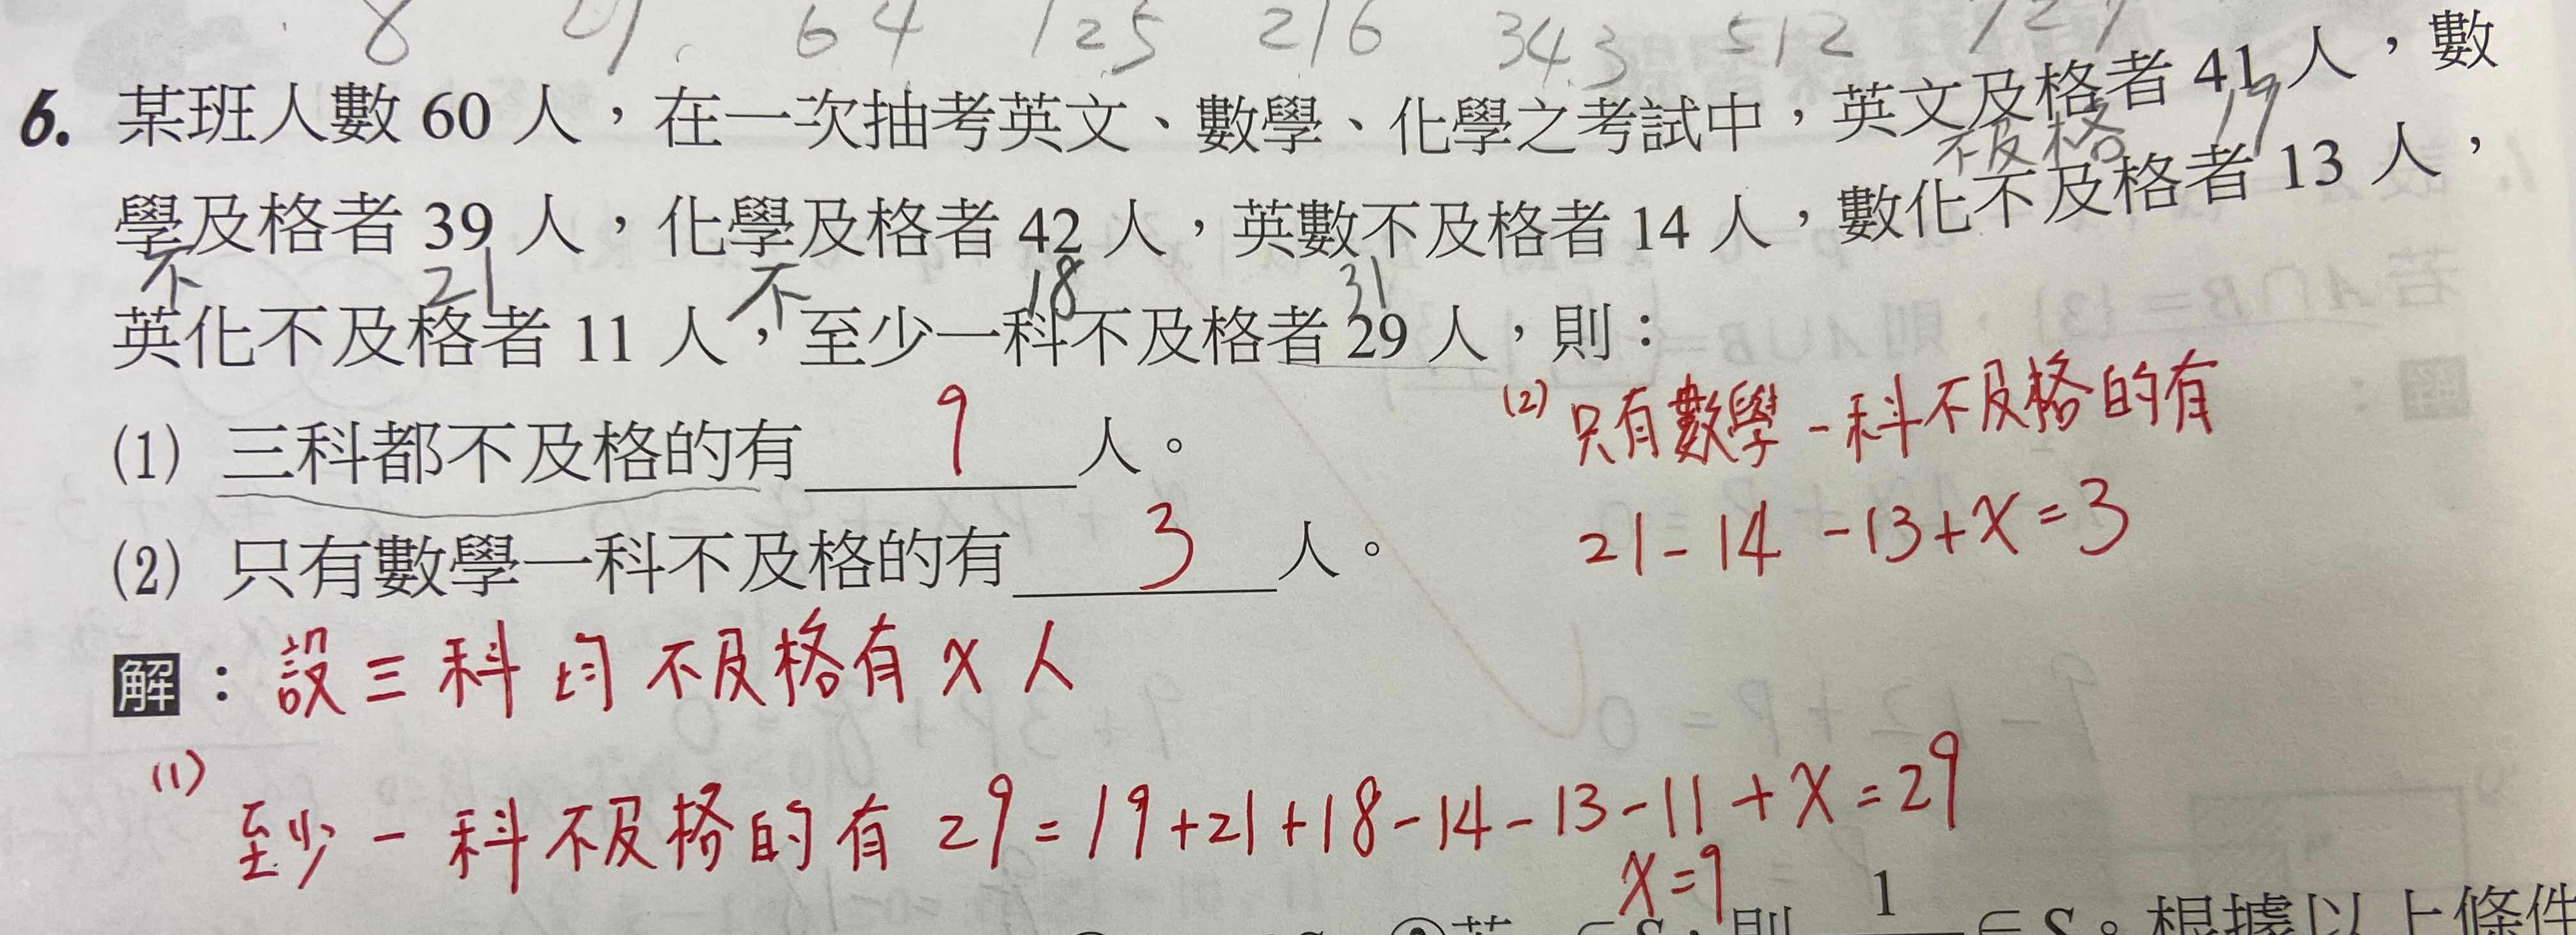 8 64 125 216 343 512 729
6. 某班人數 60 人，在一次抽考英文、數學、化學之考試中，英文及格者 41 人，數
不及格 19
學及格者 39 人，化學及格者 42 人，英數不及格者 14 人，數化不及格者 13 人，
不 21 不 18 31
英化不及格者 11 人，至少一科不及格者 29 人，則：
(1) 三科都不及格的有 9 人。
(2) 只有數學一科不及格的有 3 人。
(2) 只有數學一科不及格的有
21-14-13+x=3
解：設三科均不及格有x人
(1)
至少一科不及格的有 29=19+21+18-14-13-11+x=29
x=9
則 1 ∈ S。根據以上條件